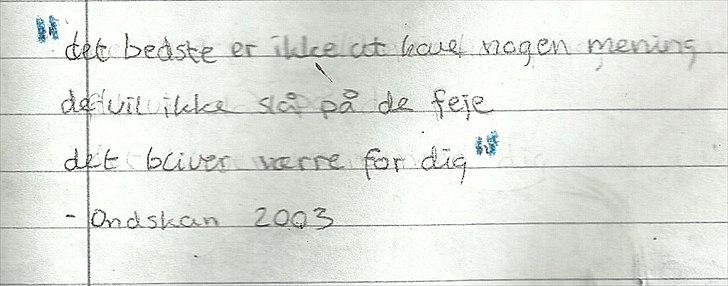 "det bedste er ikke at have nogen mening
de vil ikke slå på de feje
det bliver værre for dig"
- Ondskan 2003